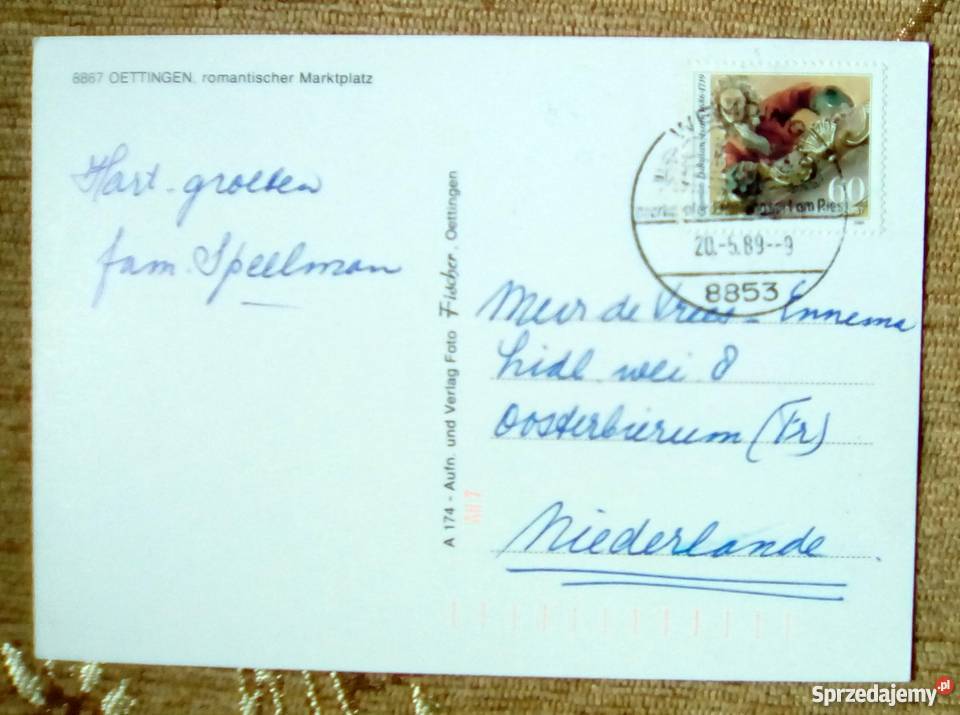 8867 OETTINGEN, romantischer Marktplatz
Hart. groeten
fam. Speelman
A 174 - Aufn. und Verlag Foto Fischer, Oettingen
60
am Ries
20.-5.89--9
8853
Mevr de Vries - Ennema
Lidl. wei 8
Oosterbierum (Fr)
Niederlande
Sprzedajemy.pl